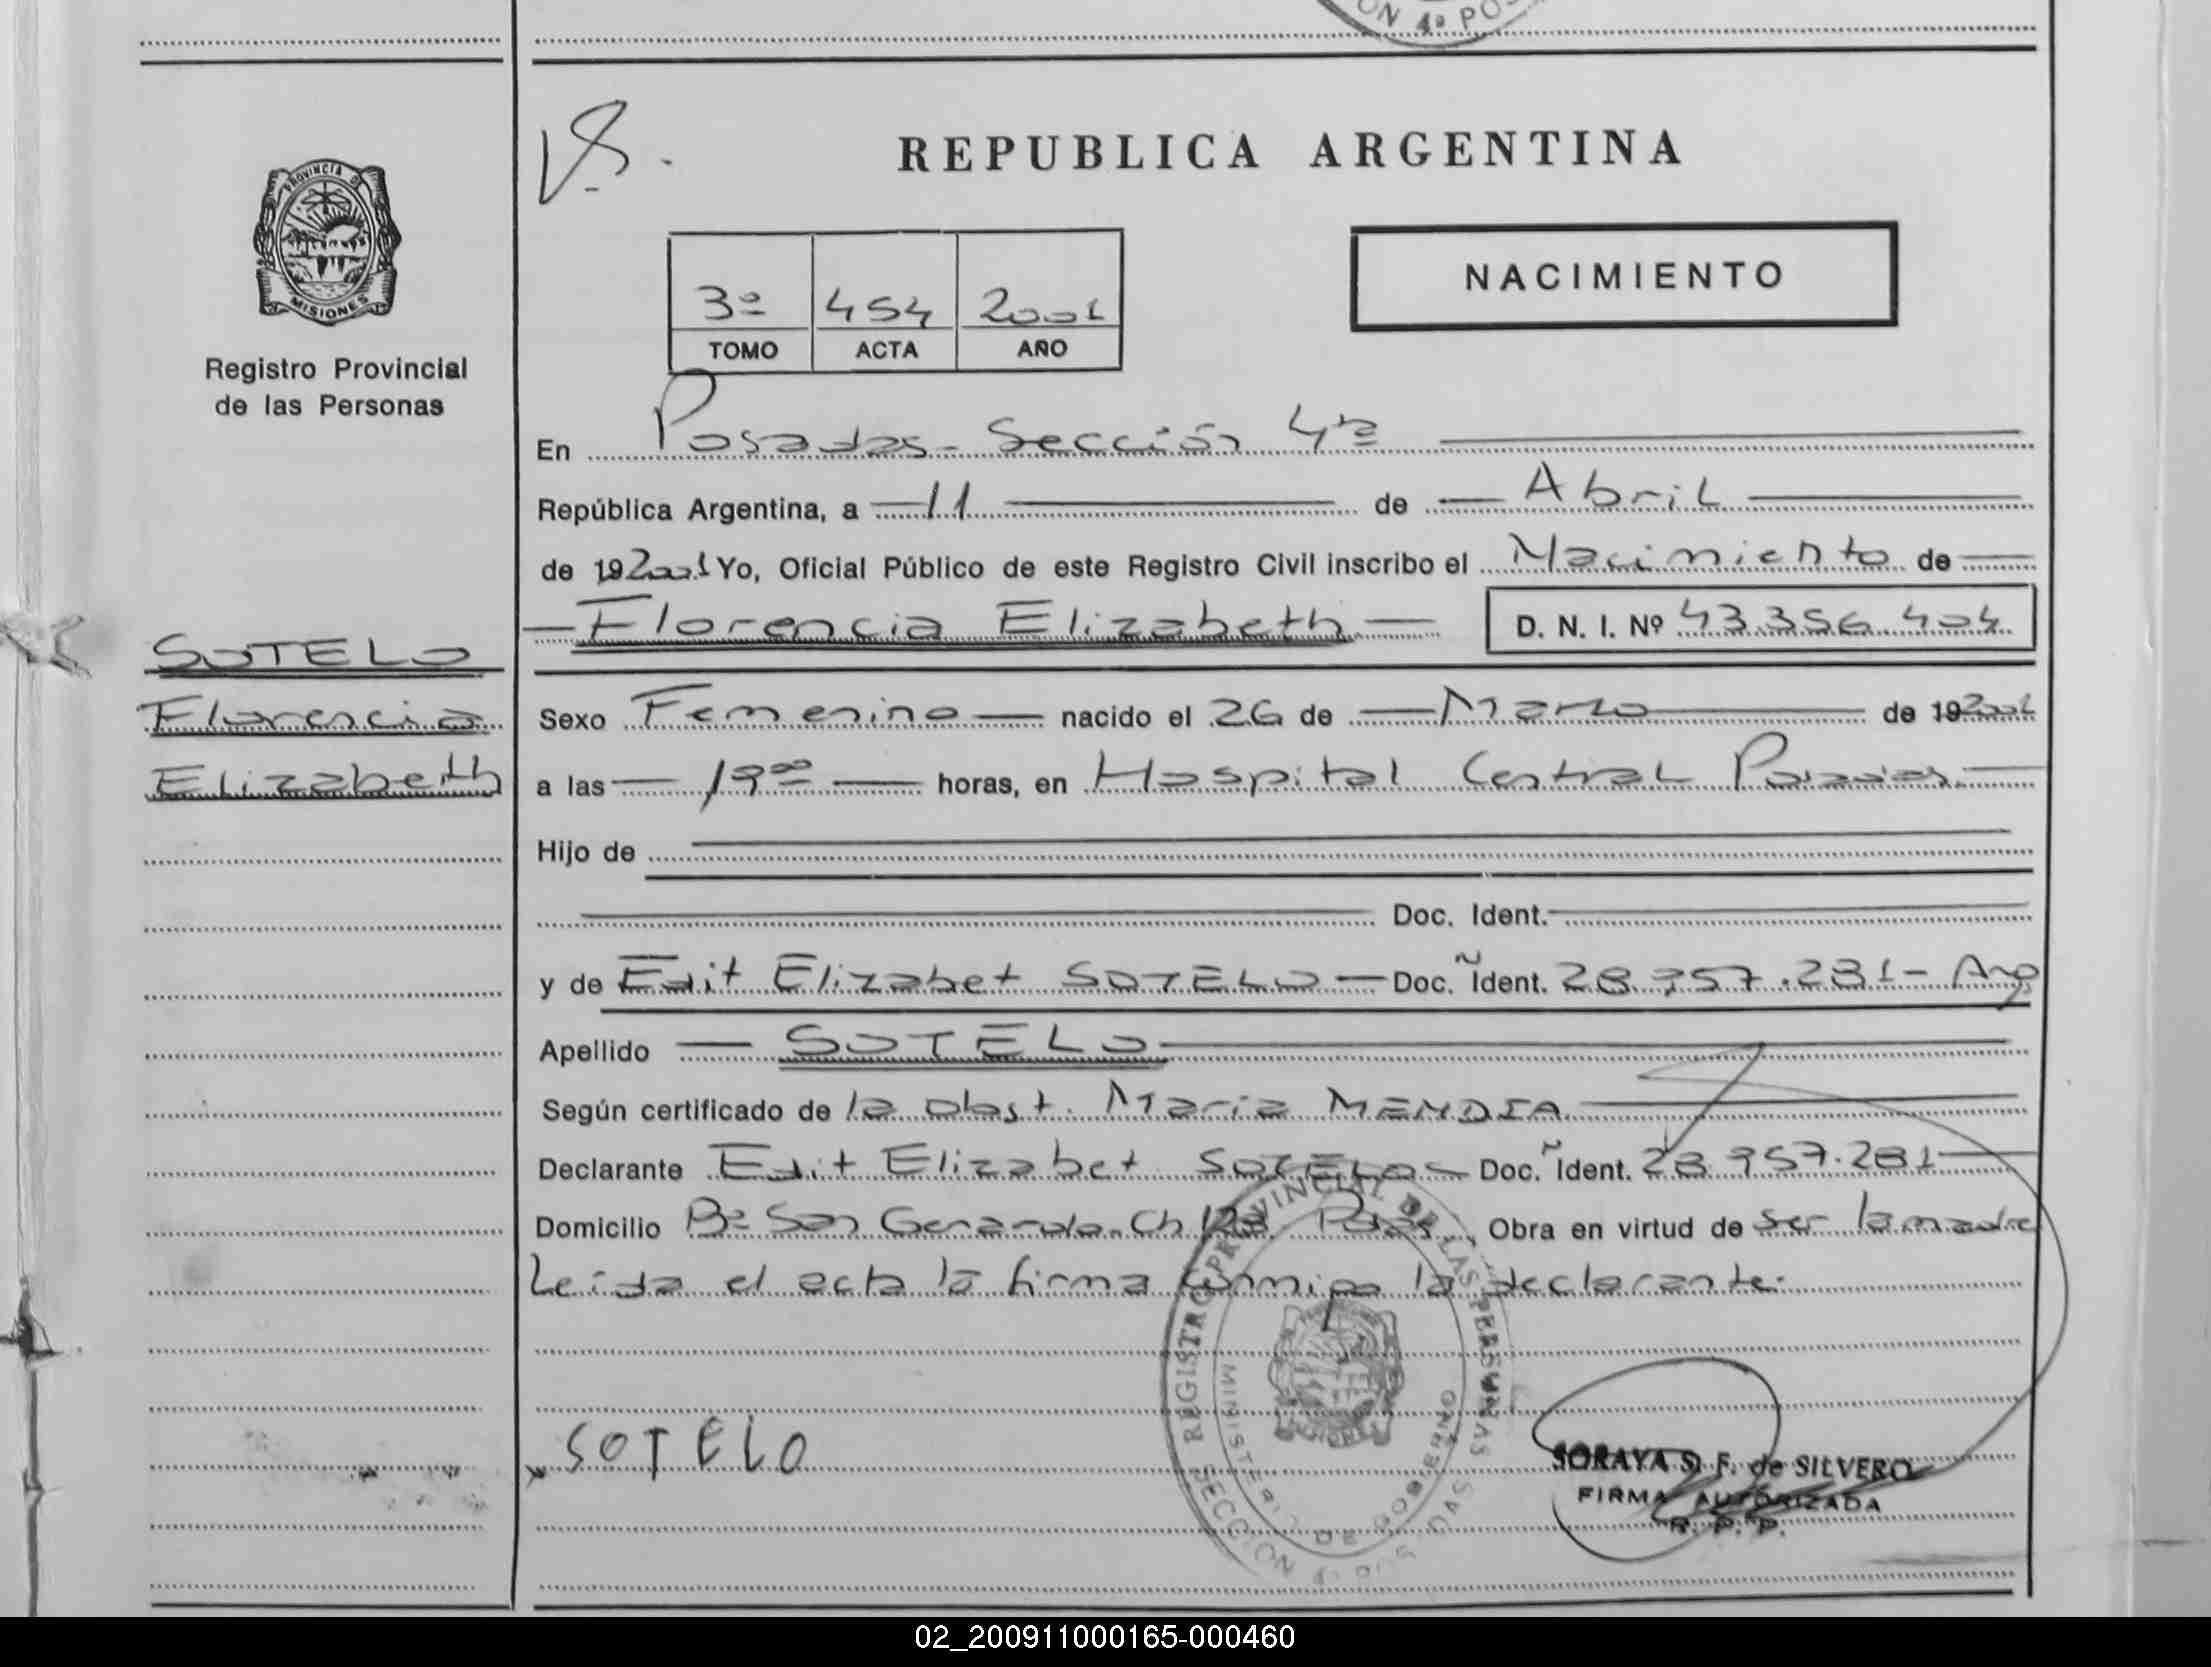 ON 4ª PO
REPUBLICA ARGENTINA
PROVINCIA DE
MISIONES
Registro Provincial
de las Personas
NACIMIENTO
3º 454 2001
TOMO ACTA AÑO
En Posadas - Sección 4ta
República Argentina, a 11 de Abril
de 192001 Yo, Oficial Público de este Registro Civil inscribo el Nacimiento de
Florencia Elizabeth D. N. I. Nº 43.356.404
SOTELO
Florencia
Elizabeth
Sexo Femenino nacido el 26 de Marzo de 192001
a las 19 00 horas, en Hospital Central Posadas
Hijo de
Doc. Ident.
y de Edit Elizabet SOTELO Doc. Ident. 28.957.281 - Arg
Apellido SOTELO
Según certificado de la Obst. Maria MENDIA
Declarante Edit Elizabet SOTELO Doc. Ident. 28.957.281
Domicilio Bº San Gerardo. Ch Pdas, Obra en virtud de ser la madre
Leída el acta la firma conmigo la declarante.
REGISTRO PROVINCIAL DE LAS PERSONAS
MINISTERIO DE GOBIERNO
SECCION 4ª POSADAS
SOTELO
SORAYA S. F. de SILVERO
FIRMA AUTORIZADA
R. P. P.
02_200911000165-000460